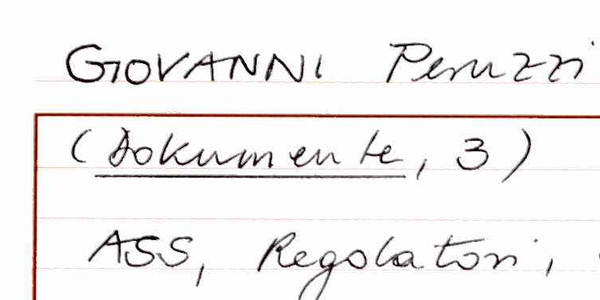 GIOVANNI Peruzzi
(Dokumente, 3)
ASS, Regolatori,